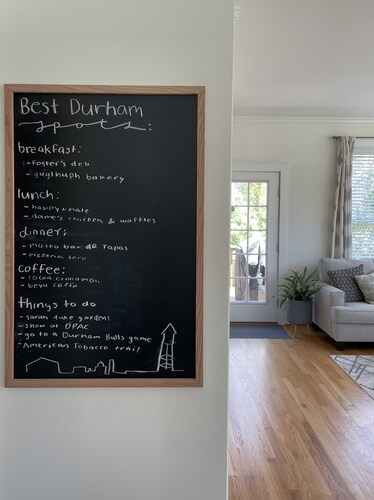 Best Durham
spots:
breakfast:
-foster's deli
-guglhuph bakery
lunch:
- happy + hale
- dame's chicken & waffles
dinner:
- mateo bar de tapas
- pizzeria toro
coffee:
- cocoa cinnamon
- beyu caffe
things to do
- sarah duke gardens
- show at DPAC
- go to a Durham Bulls game
- American Tobacco trail